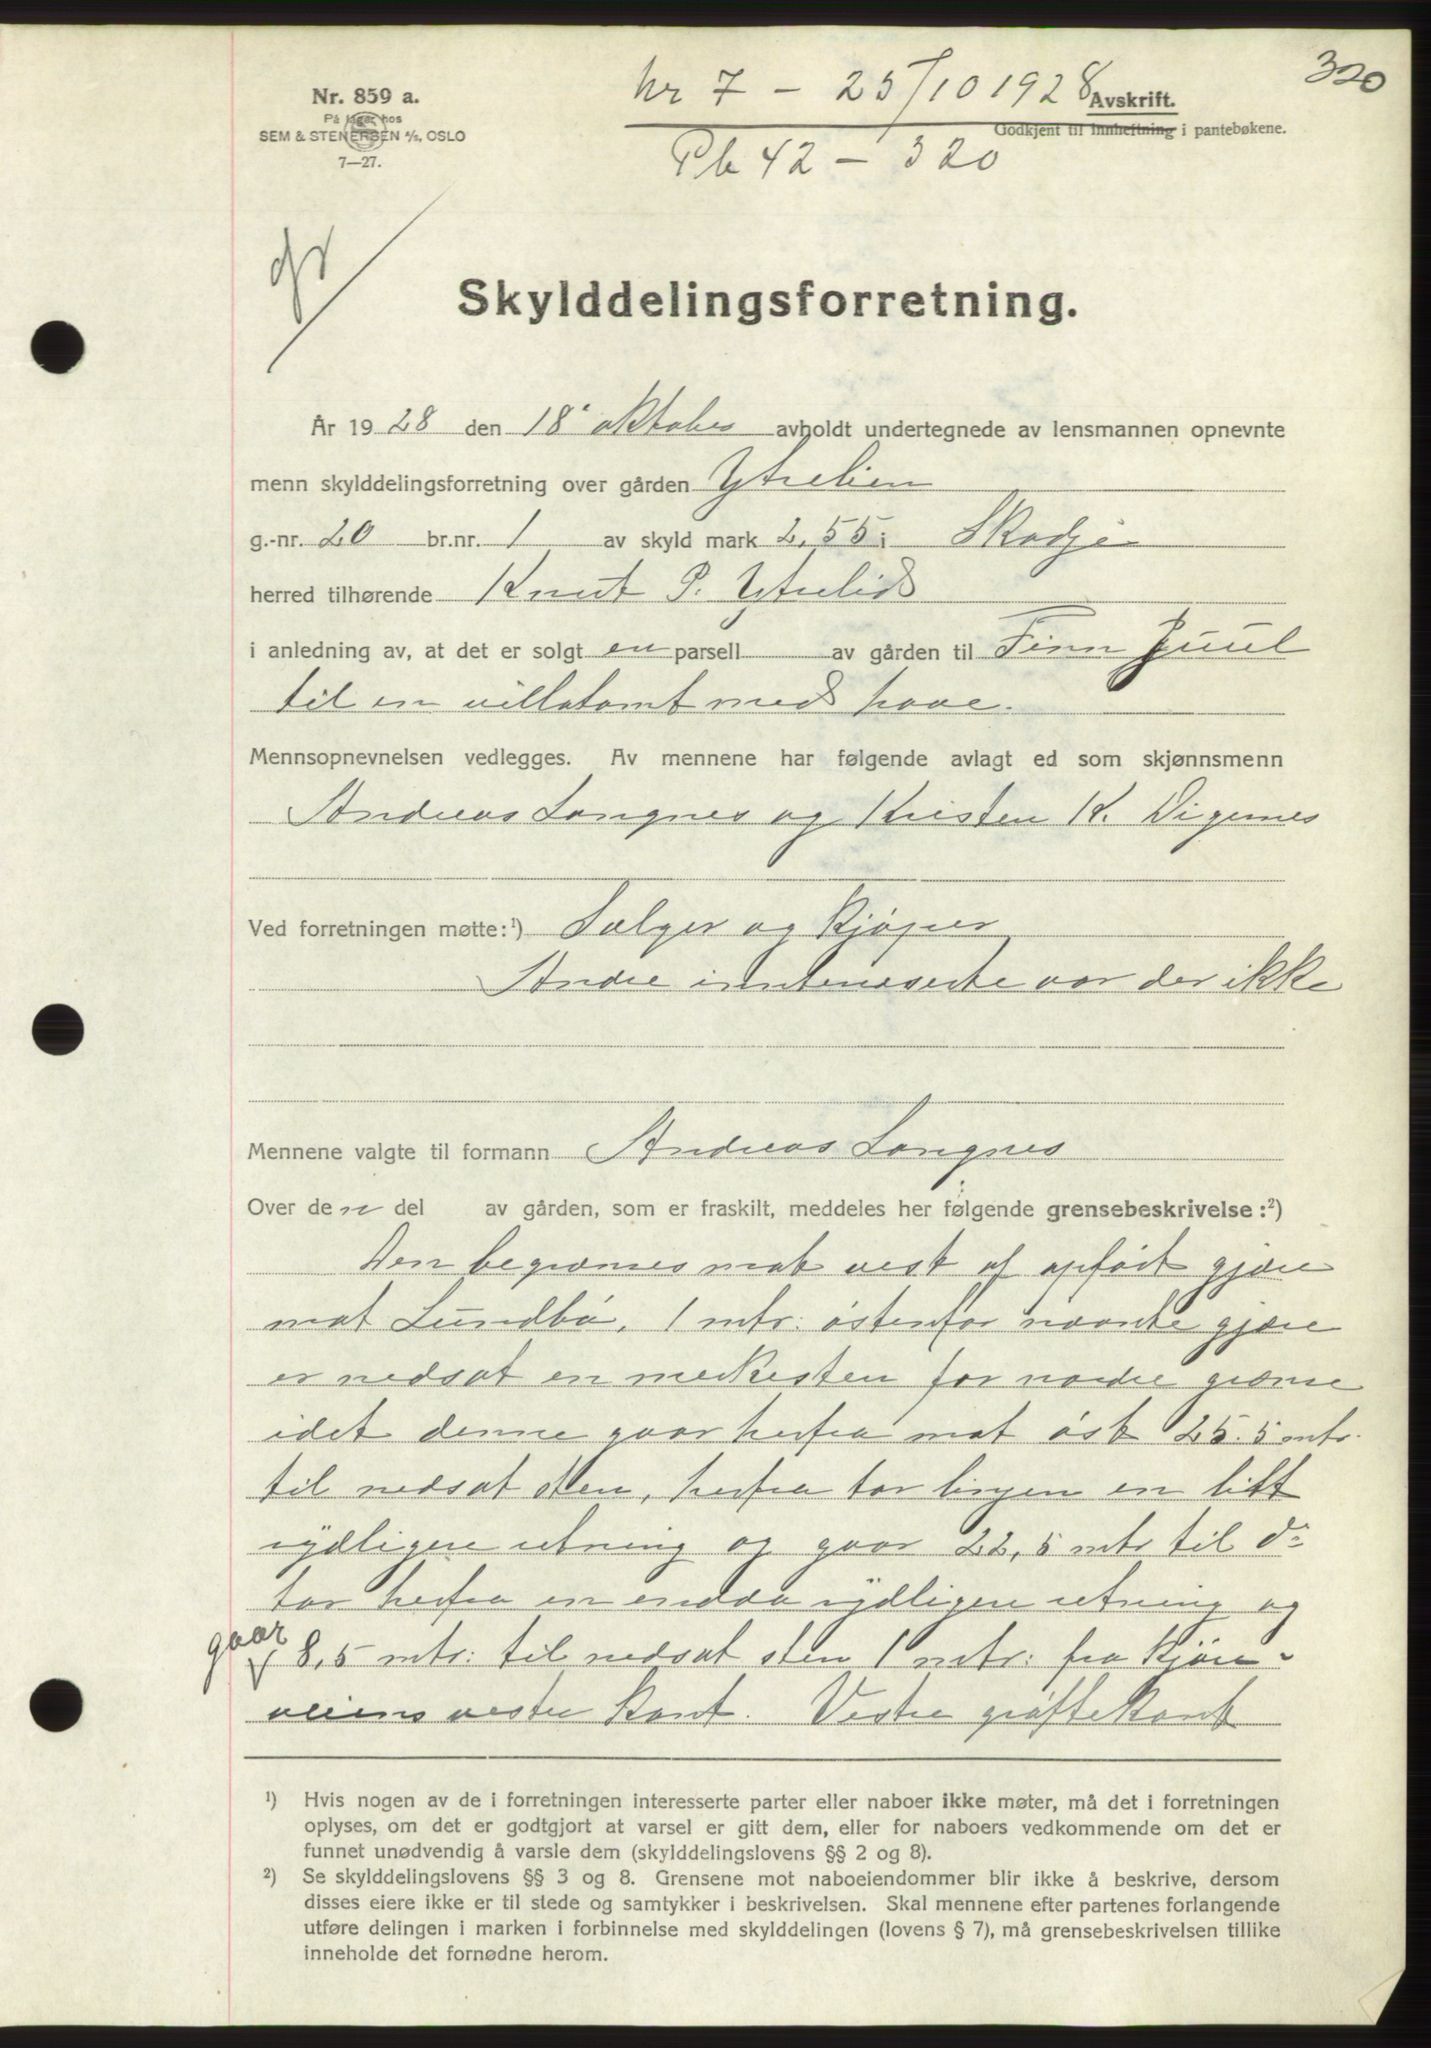 320
Nr. 859 a.
På lager hos
SEM & STENERSEN A/S, OSLO
7—27.
Nr 7 - 25/10 1928
Avskrift.
Godkjent til innheftning i pantebøkene.
Pb 42 - 320
Skylddelingsforretning.
År 1928 den 18' oktober avholdt undertegnede av lensmannen opnevnte
menn skylddelingsforretning over gården Ytrelien
g.-nr. 20 br.nr. 1 av skyld mark 2,55 i Skodje
herred tilhørende Knut P. Ytrelid
i anledning av, at det er solgt en parsell av gården til Finn Juul
til en villatomt med have.
Mennsopnevnelsen vedlegges. Av mennene har følgende avlagt ed som skjønnsmenn
Andreas Langnes og Kristen K. Digernes
Ved forretningen møtte:¹) Sælger og kjøper
Andre interesserte var der ikke
Mennene valgte til formann Andreas Langnes
Over den del av gården, som er fraskilt, meddeles her følgende grensebeskrivelse:²)
Den begrænses mot vest af opført gjære
mot Lundbø, 1 mtr: østenfor nævnte gjære
er nedsat en merkesten for nordre grænse
idet denne gaar herfra mot øst 25.5 mtr.
til nedsat sten, herfra tar linjen en litt
sydligere retning og gaar 22,5 mtr til do
tar herfra en endda sydligere retning og
gaar 8,5 mtr: til nedsat sten 1 mtr: fra kjøre-
veiens vestre kant. Vestre grøftekant
¹) Hvis nogen av de i forretningen interesserte parter eller naboer ikke møter, må det i forretningen
oplyses, om det er godtgjort at varsel er gitt dem, eller for naboers vedkommende om det er
funnet unødvendig å varsle dem (skylddelingslovens §§ 2 og 8).
²) Se skylddelingslovens §§ 3 og 8. Grensene mot naboeiendommer blir ikke å beskrive, dersom
disses eiere ikke er til stede og samtykker i beskrivelsen. Skal mennene efter partenes forlangende
utføre delingen i marken i forbinnelse med skylddelingen (lovens § 7), må grensebeskrivelsen tillike
inneholde det fornødne herom.